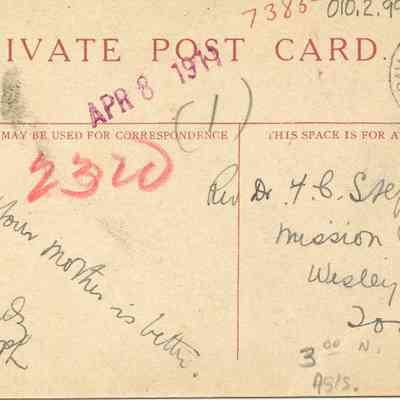 7385 010.2.99
IVATE POST CARD.
APR 8 1911
(1)
MAY BE USED FOR CORRESPONDENCE
THIS SPACE IS FOR A
2320
Rev Dr. F. C. Step
Mission
Wesley
To
your mother is better.
3 00 N.
Ag/s.